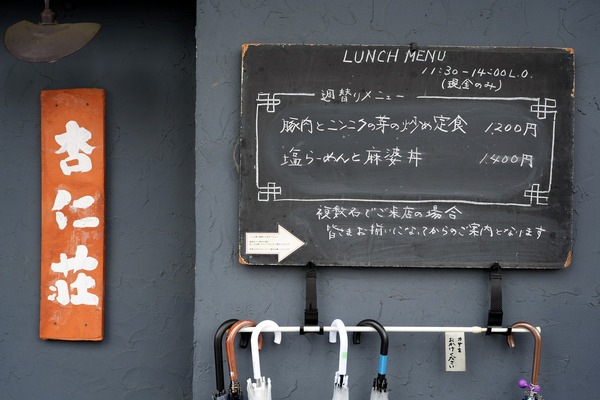 杏仁荘
LUNCH MENU
11:30-14:00L.O.
(現金のみ)
週替りメニュー
豚肉とニンニクの芽の炒め定食 1,200円
塩らーめんと麻婆丼 1,400円
複数名でご来店の場合
皆さまお揃いになってからのご案内となります
カサを
おかけください